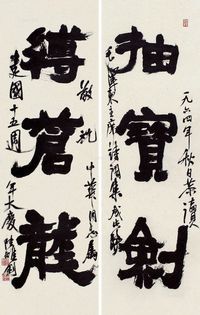 一九六四年秋日恭讀
抽寶劍
毛澤東主席詩詞集成此聯
縛蒼龍
敬祝
建國十五週
年大慶
中英同志屬
陸維釗